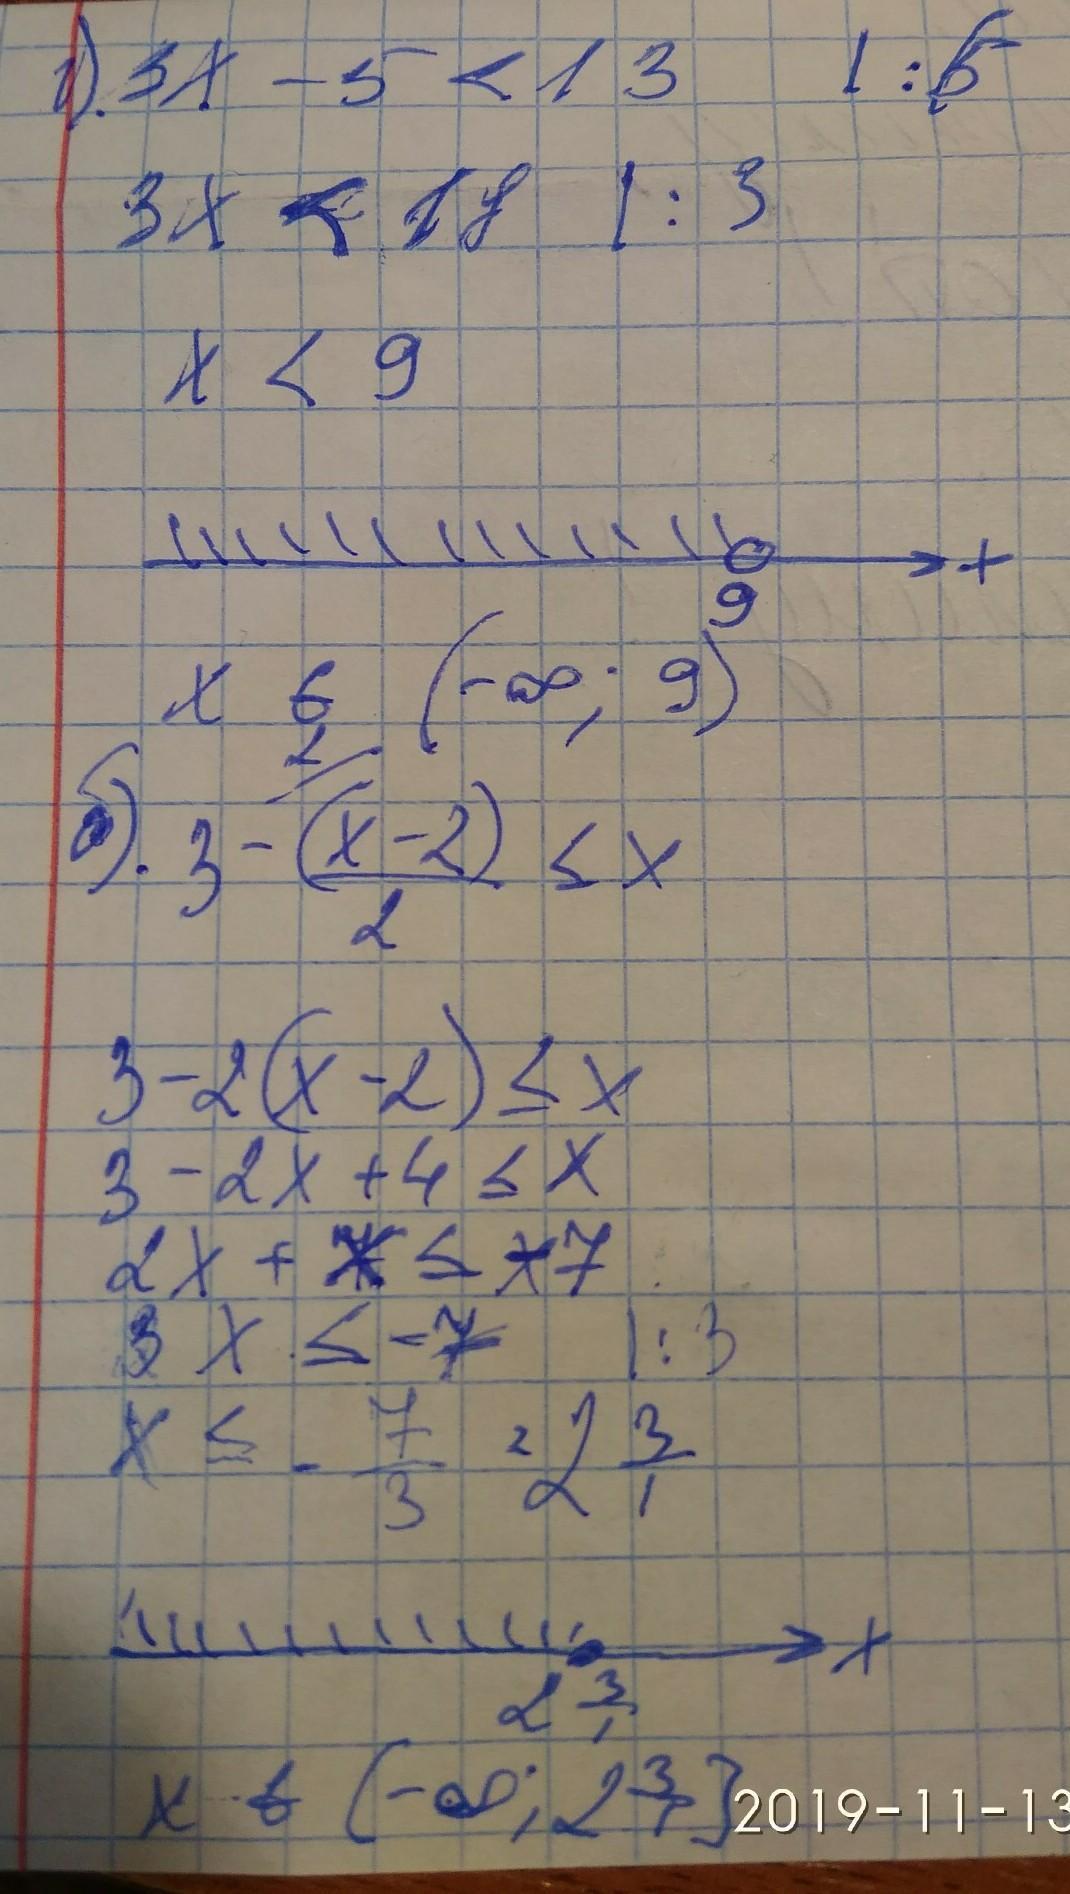 1). 3x - 5 < 13 | : 5
3x < 18 | : 3
x < 9
9
x ∈ (-∞; 9)
2
б). 3 - (x - 2)/2 ≤ x
3 - 2(x - 2) ≤ x
3 - 2x + 4 ≤ x
2x + x ≤ 7
3x ≤ -7 | : 3
x ≤ - 7/3 = 2 3/1
x
2 3/1
x ∈ (-∞; 2 3/1]
2019-11-13